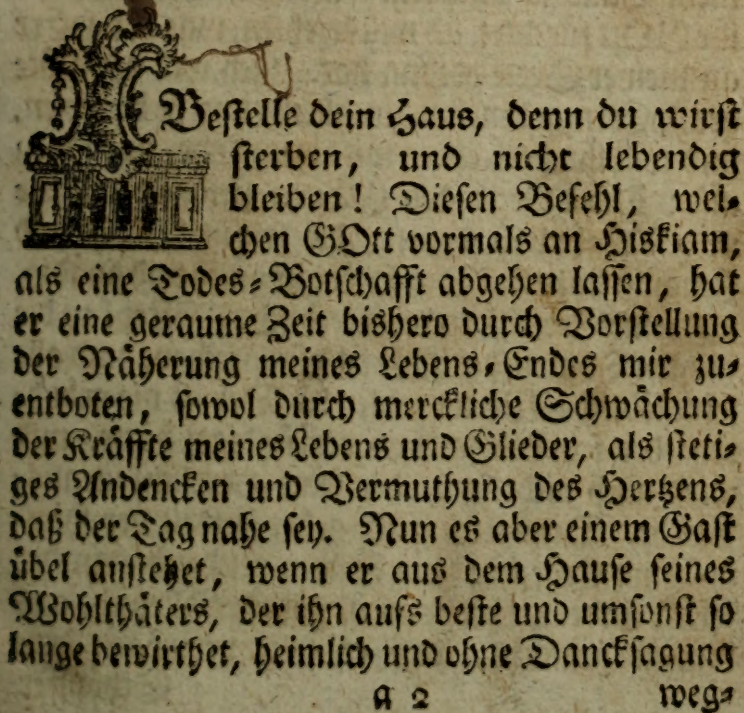 Bestelle dein Haus, denn du wirst
sterben, und nicht lebendig
bleiben! Diesen Befehl, wel-
chen GOtt vormals an Hiskiam,
als eine Todes-Botschafft abgehen lassen, hat
er eine geraume Zeit bishero durch Vorstellung
der Näherung meines Lebens-Endes mir zu-
entboten, sowol durch merckliche Schwächung
der Kräffte meines Lebens und Glieder, als steti-
ges Andencken und Vermuthung des Hertzens,
daß der Tag nahe sey. Nun es aber einem Gast
übel anstehet, wenn er aus dem Hause seines
Wohlthäters, der ihn aufs beste und umsonst so
lange bewirthet, heimlich und ohne Dancksagung
a 2 weg-